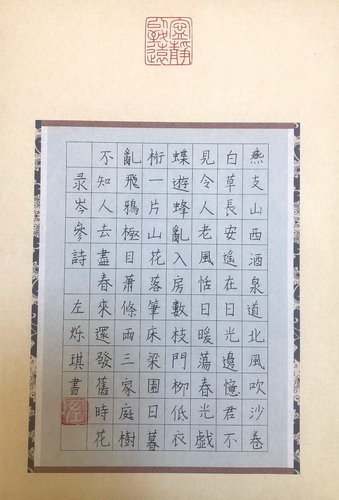 寧靜
致遠
燕支山西酒泉道北風吹沙卷
白草長安遙在日光邊憶君不
見令人老風恬日暖蕩春光戲
蝶遊蜂亂入房數枝門柳低衣
桁一片山花落筆床梁園日暮
亂飛鴉極目蕭條西三家庭樹
不知人去盡春來還發舊時花
录岑參詩 左烁琪書